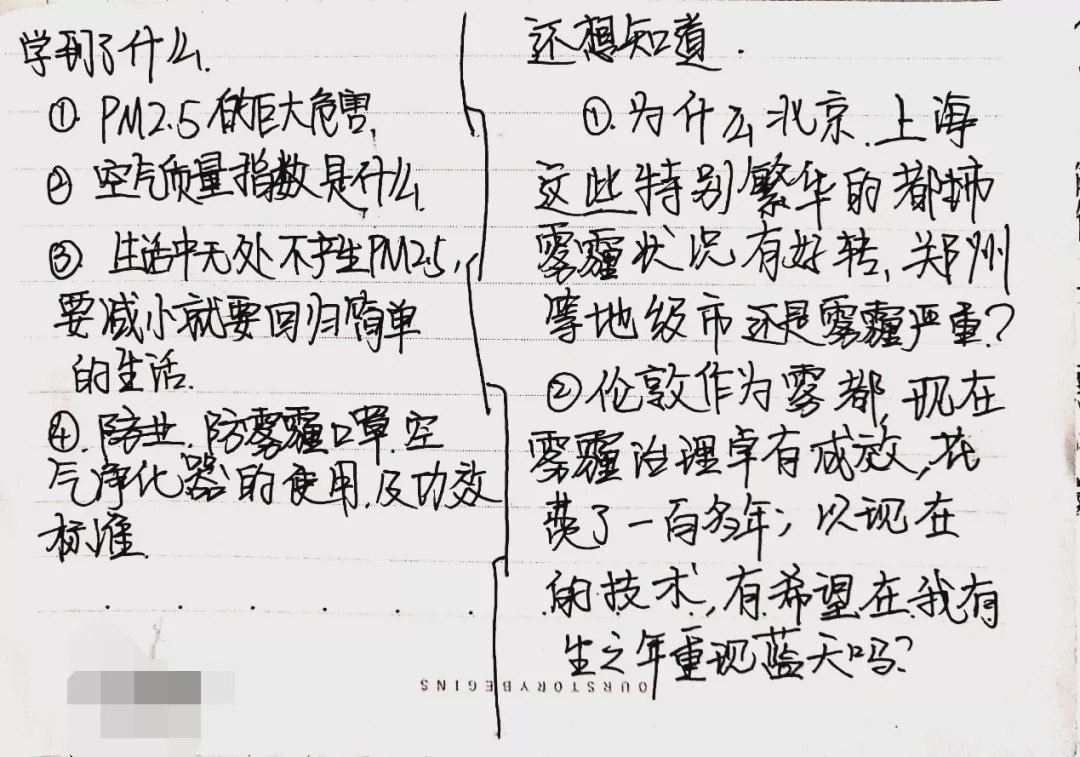 学到了什么.
① PM2.5的巨大危害,
② 空气质量指数是什么
③. 生活中无处不产生PM2.5,
要减小就要回归简单
的生活.
④. 防尘. 防雾霾口罩. 空
气净化器的使用. 及功效
标准.
还想知道.
①. 为什么北京. 上海
这些特别繁华的都市
雾霾状况有好转, 郑州
等地级市还是雾霾严重?
②伦敦作为雾都, 现在
雾霾治理卓有成效, 花
费了一百多年; 以现在
的技术, 有希望在我有
生之年重现蓝天吗?
OURSTORYBEGINS